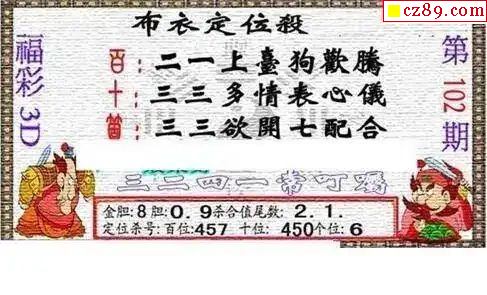 cz89.com
布衣定位殺
福彩3D
第102期
百:二一上臺狗歡騰
十:三三多情表心儀
個:三三欲開七配合
三二四一常叮嚀
金胆:8胆:0.9杀合值尾数:2.1.
定位杀号:百位:457 十位:450个位:6